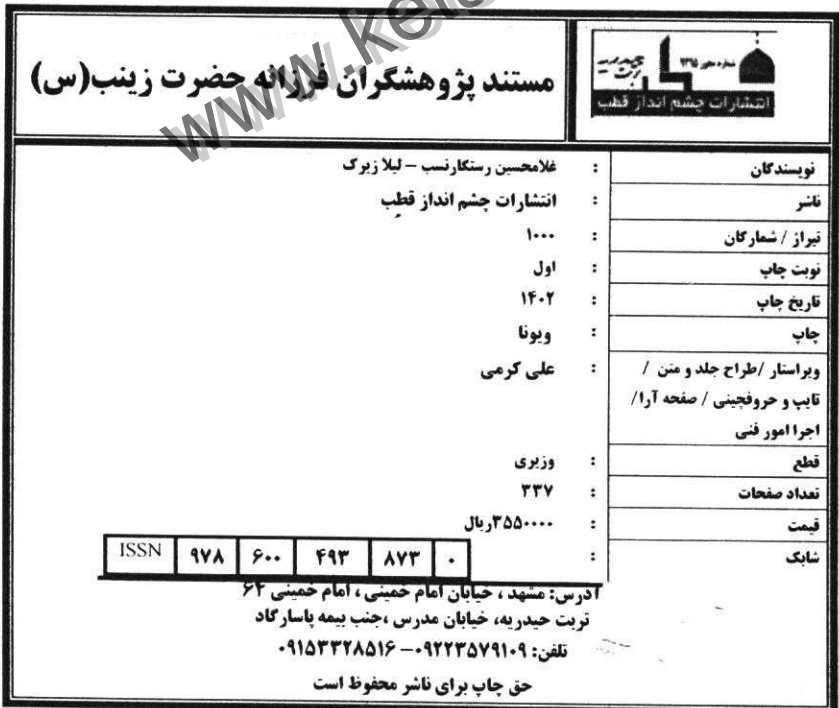 مستند پژوهشگران فرزانه حضرت زینب(س)
انتشارات چشم انداز قطب
نویسندگان : غلامحسین رستگارنسب – لیلا زیرک
ناشر : انتشارات چشم انداز قطب
تیراژ / شمارگان : ۱۰۰۰
نوبت چاپ : اول
تاریخ چاپ : ۱۴۰۲
چاپ : ویونا
ویراستار /طراح جلد و متن / : علی کرمی
تایپ و حروفچینی / صفحه آرا/
اجرا امور فنی
قطع : وزیری
تعداد صفحات : ۳۳۷
قیمت : ۳۵۵۰۰۰۰ریال
شابک : ISSN ۹۷۸ ۶۰۰ ۴۹۳ ۸۷۳ ۰
آدرس: مشهد ، خیابان امام خمینی ، امام خمینی ۶۴
تربت حیدریه، خیابان مدرس ،جنب بیمه پاسارگاد
تلفن: ۰۹۲۲۳۵۷۹۱۰۹– ۰۹۱۵۳۳۲۸۵۱۶
حق چاپ برای ناشر محفوظ است